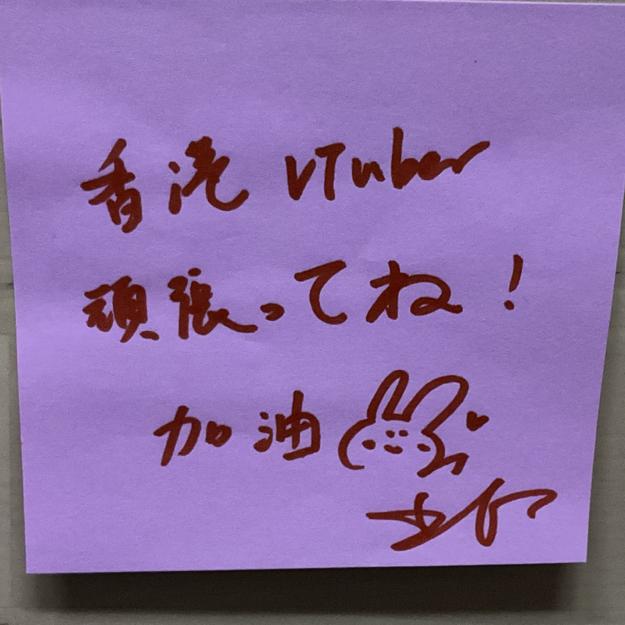 香港 VTuber
頑張ってね！
加油